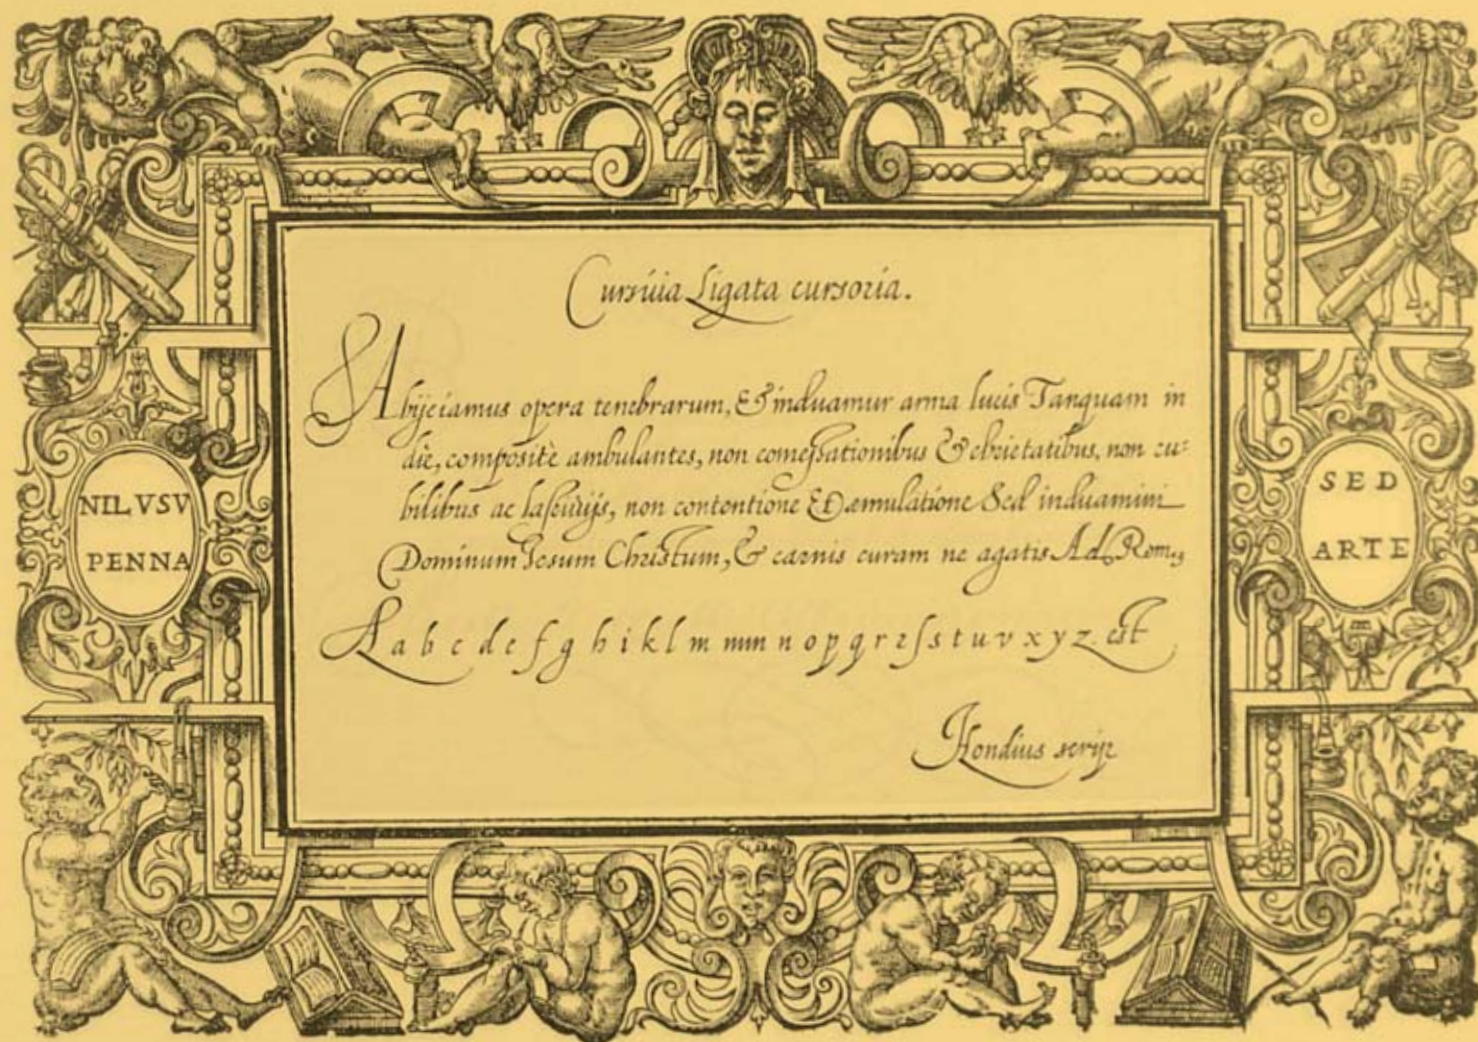 Cursiuia Ligata cursoria.
Abijciamus opera tenebrarum, & induamur arma lucis Tanquam in
die, compositè ambulantes, non comeſsationibus & ebrietatibus, non cu-
bilibus ac laſciuijs, non contentione & æmulatione Sed induamini
Dominum Iesum Christum, & carnis curam ne agatis Ad Rom,,
NIL VSV
PENNA
SED
ARTE
A a b c d e f g h i k l m mm n o p q r ꝛ ſ s t u v x y z. est
Hondius scrip